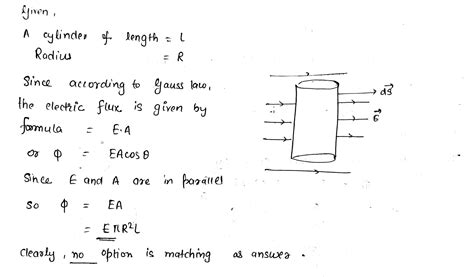 Given,
A cylinder of length = L
Radius = R
Since according to Gauss law,
the electric flux is given by
formula = E.A
or Φ = EA cos θ
Since E and A are in parallel
so Φ = EA
= EπR²L
clearly, no option is matching as answer.
dS⃗
E⃗